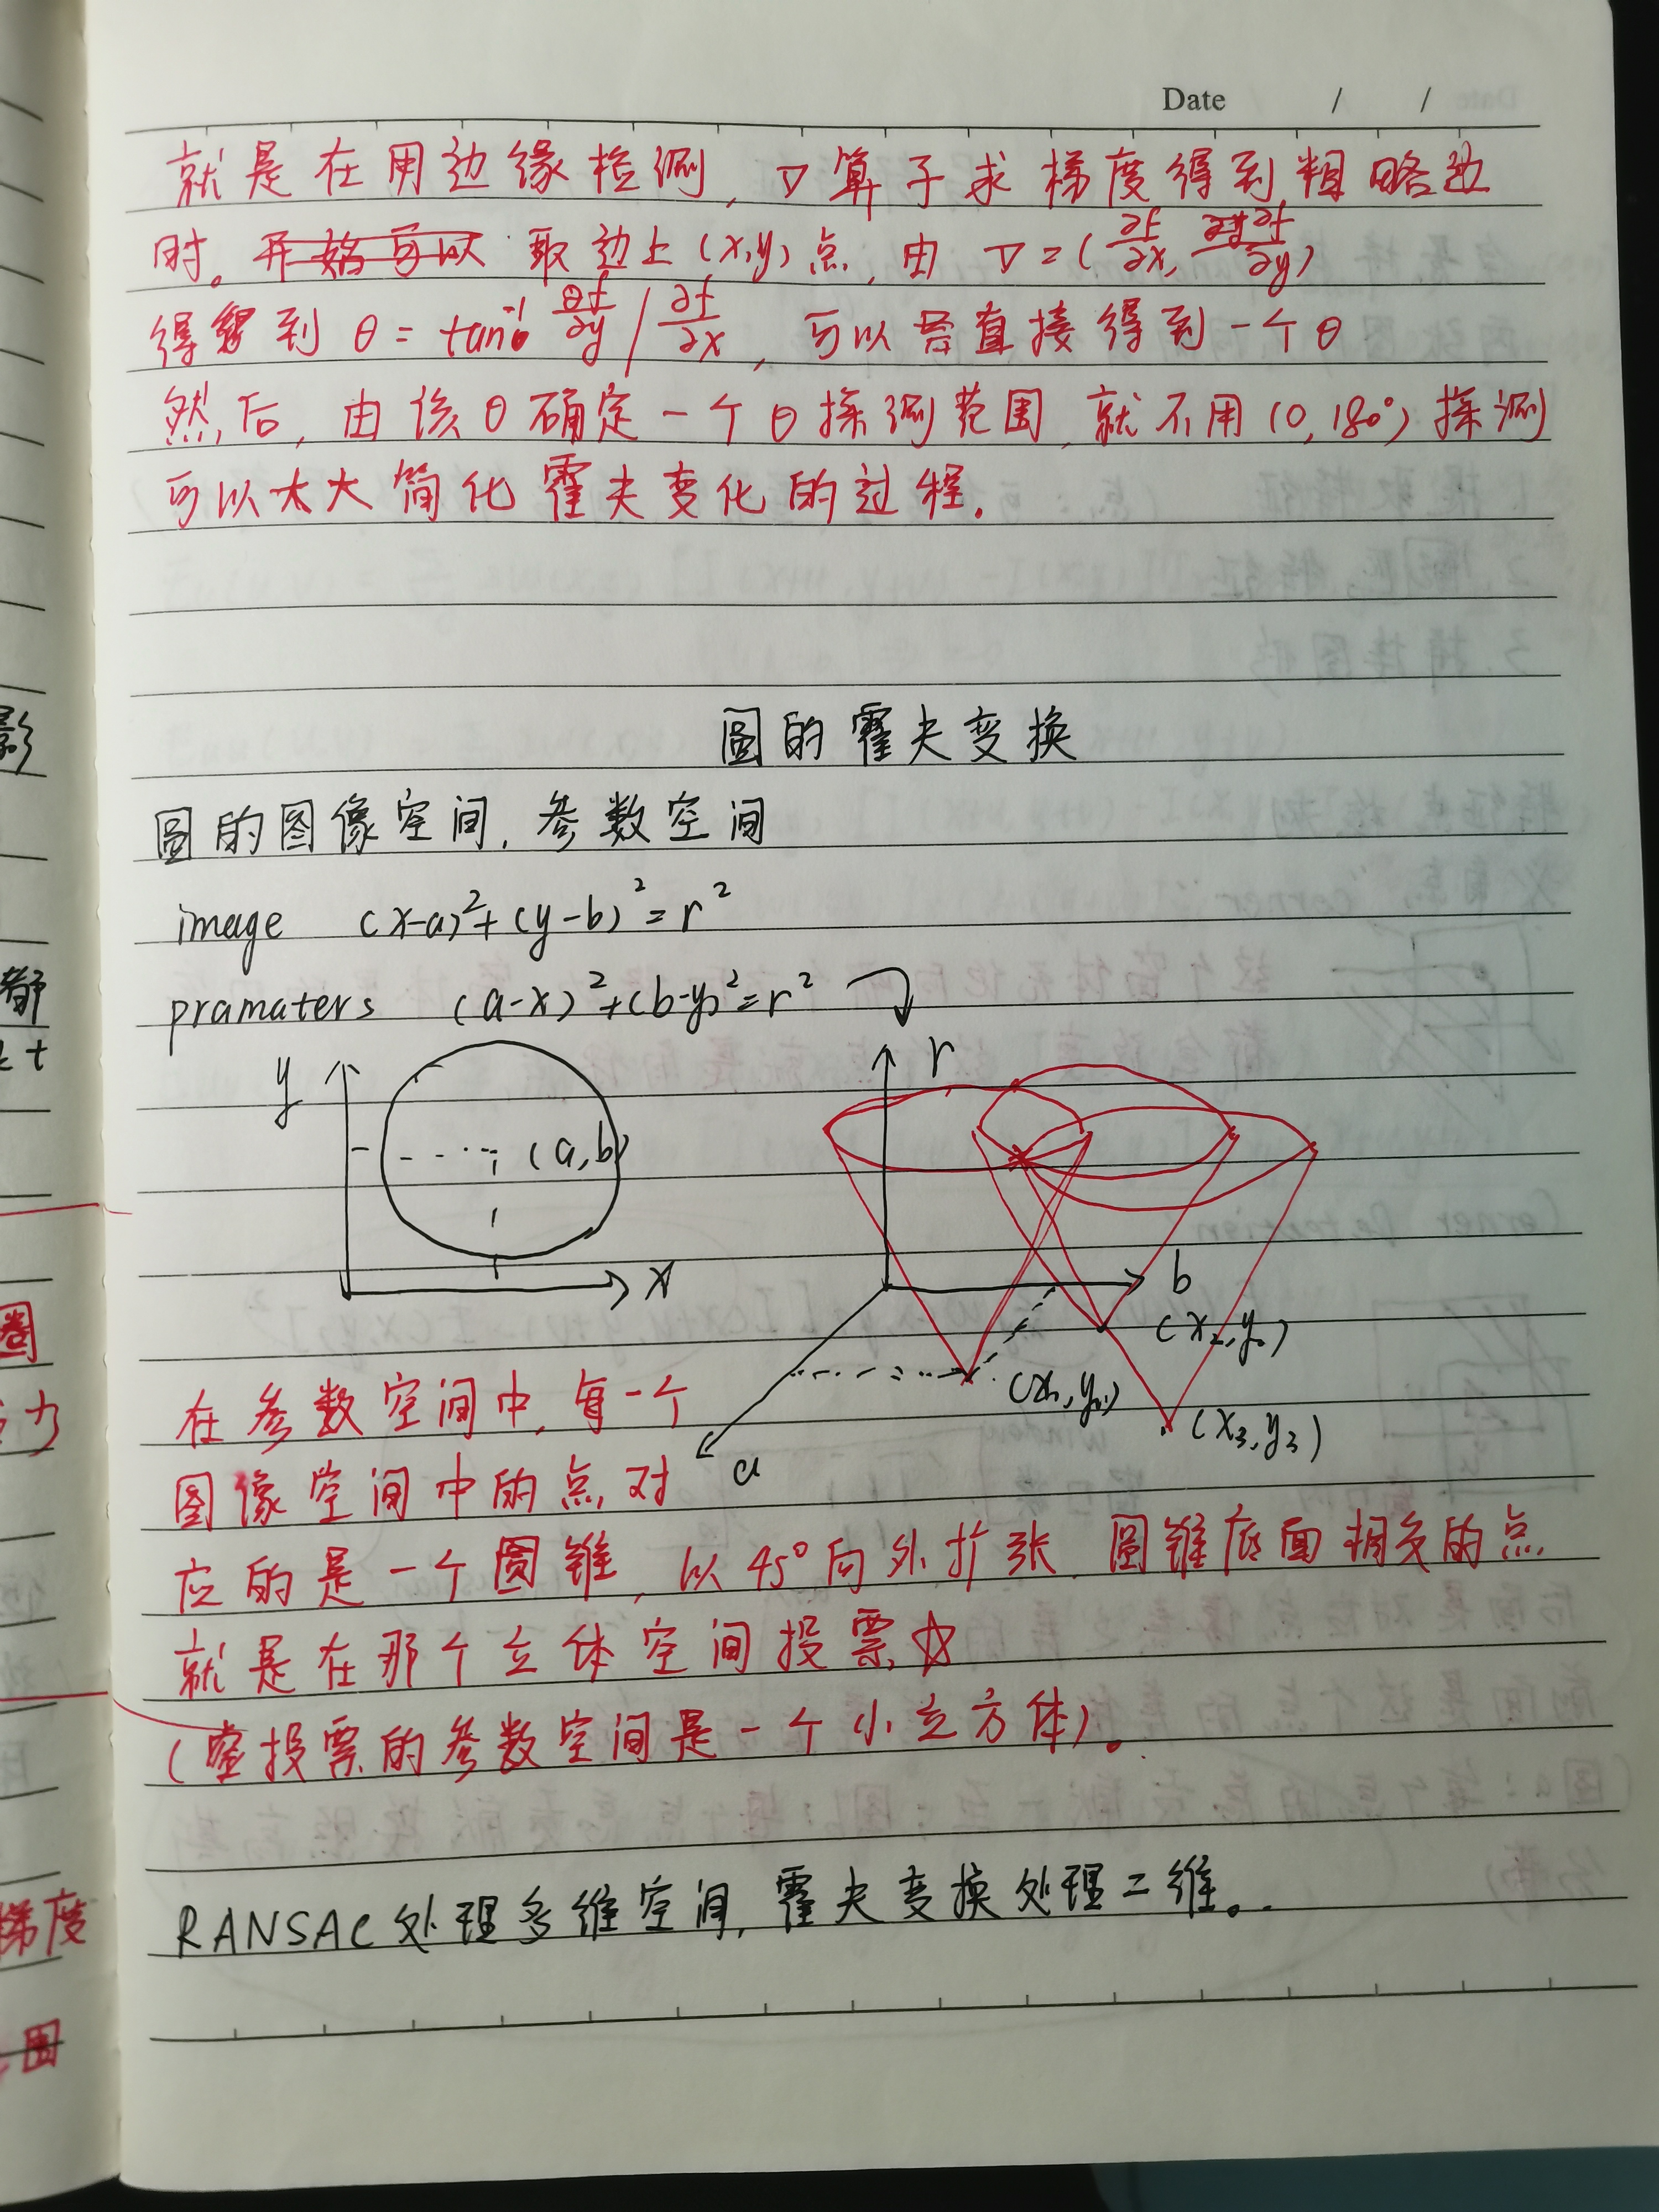 Date / /
就是在用边缘检测,▽算子求梯度得到粗略边
时。开始可以 取边上(x,y)点,由 ▽=(∂f/∂x, ∂f/∂y)
得到 θ = tan⁻¹ ∂f/∂y / ∂f/∂x, 可以直接得到一个θ
然后,由该θ确定一个θ探测范围,就不用(0,180°)探测
可以大大简化霍夫变化的过程.
圆的霍夫变换
圆的图像空间,参数空间
image (x-a)²+(y-b)²=r²
pramaters (a-x)²+(b-y)²=r²
y
(a,b)
x
r
b
(x₂,y₂)
(x₁,y₁)
(x₃,y₃)
a
在参数空间中,每一个
图像空间中的点对
应的是一个圆锥,以45°向外扩张.圆锥底面相交的点
就是在那个立体空间投票☆
(投票的参数空间是一个小立方体)。
RANSAC处理多维空间,霍夫变换处理二维。
影
都
圈
力
梯度
围